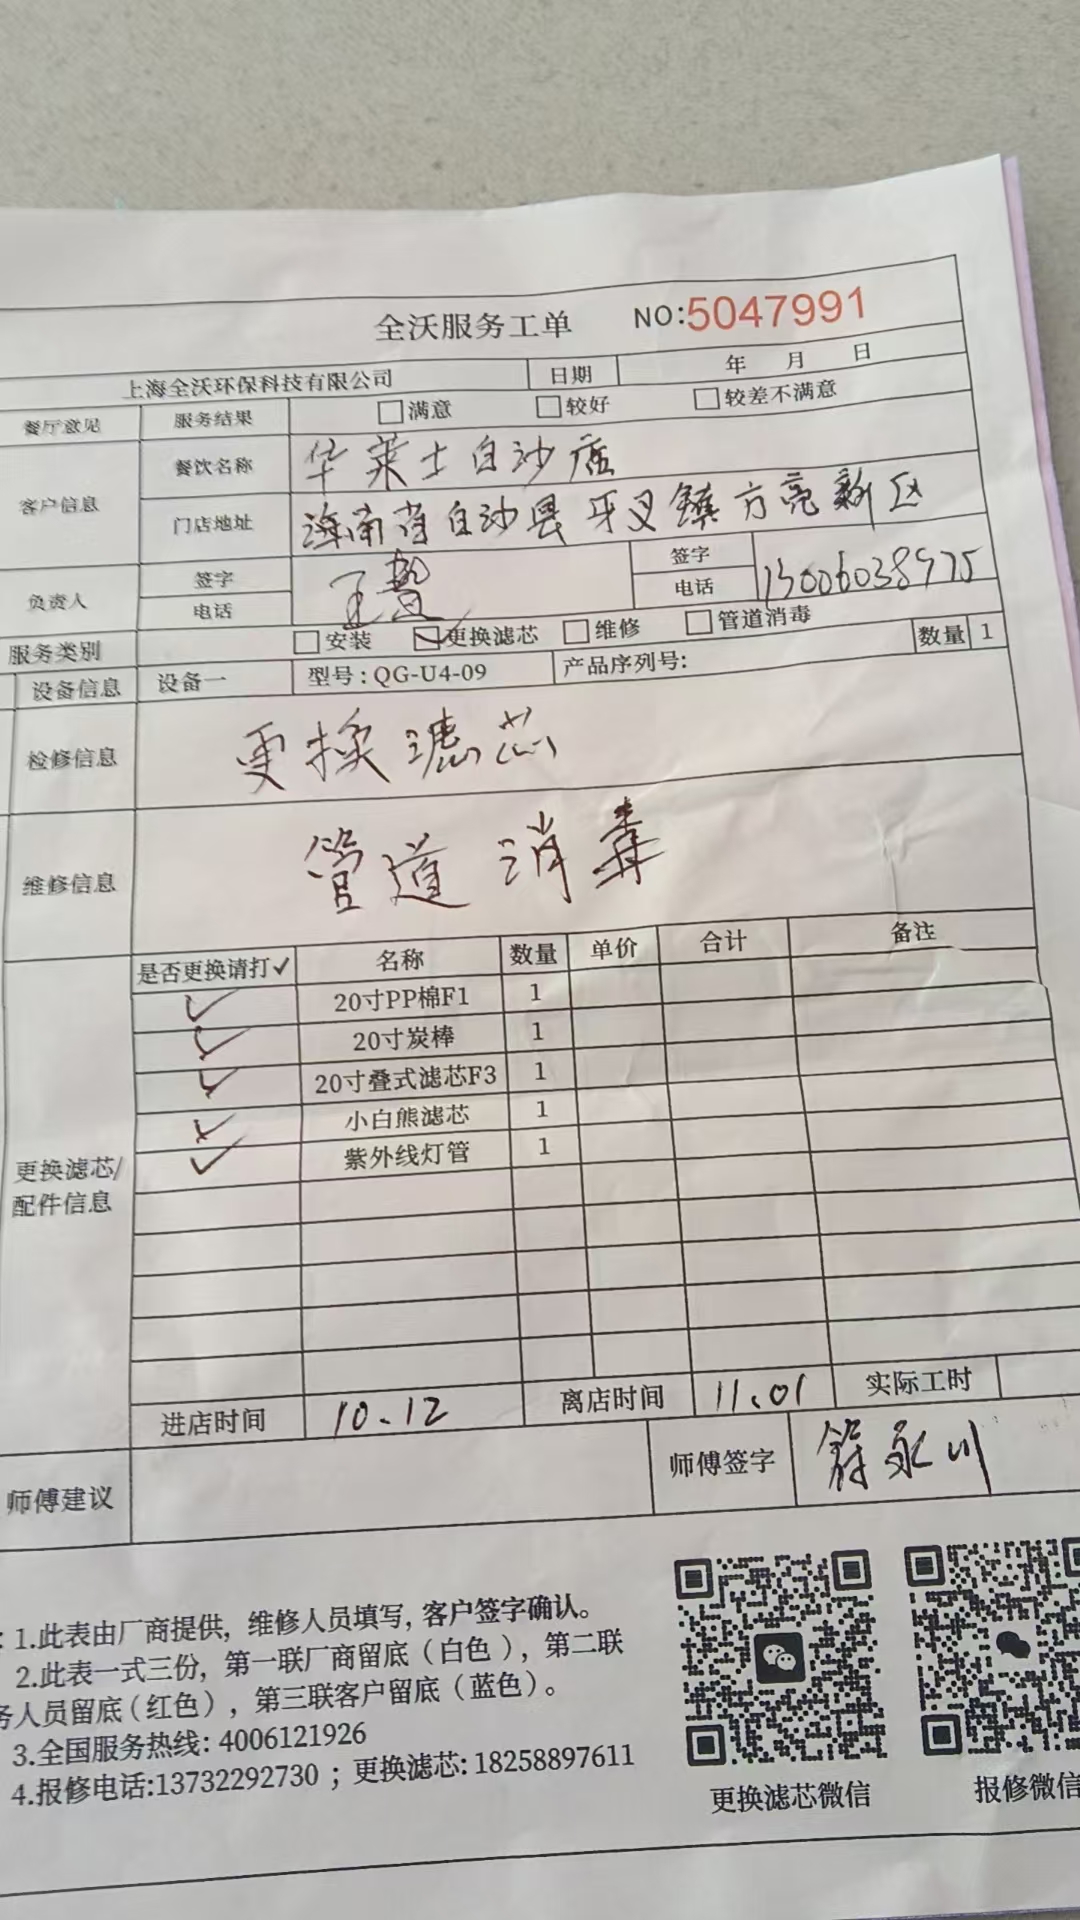 全沃服务工单 NO:5047991
上海全沃环保科技有限公司 日期 年 月 日
餐厅意见 服务结果 满意 较好 较差不满意
客户信息 餐饮名称 华莱士白沙店
门店地址 海南省白沙县牙叉镇方亮新区
负责人 签字 王 签字
电话 电话 13006038975
服务类别 安装 更换滤芯 维修 管道消毒
设备信息 设备一 型号:QG-U4-09 产品序列号: 数量 1
检修信息 更换滤芯
维修信息 管道消毒
是否更换请打✓ 名称 数量 单价 合计 备注
✓ 20寸PP棉F1 1
✓ 20寸炭棒 1
✓ 20寸叠式滤芯F3 1
✓ 小白熊滤芯 1
✓ 紫外线灯管 1
更换滤芯/
配件信息
进店时间 10.12 离店时间 11.01 实际工时
师傅建议 师傅签字 永川
: 1.此表由厂商提供, 维修人员填写, 客户签字确认。
2.此表一式三份, 第一联厂商留底(白色), 第二联
务人员留底(红色), 第三联客户留底(蓝色)。
3.全国服务热线: 4006121926
4.报修电话:13732292730 ; 更换滤芯: 18258897611
更换滤芯微信 报修微信